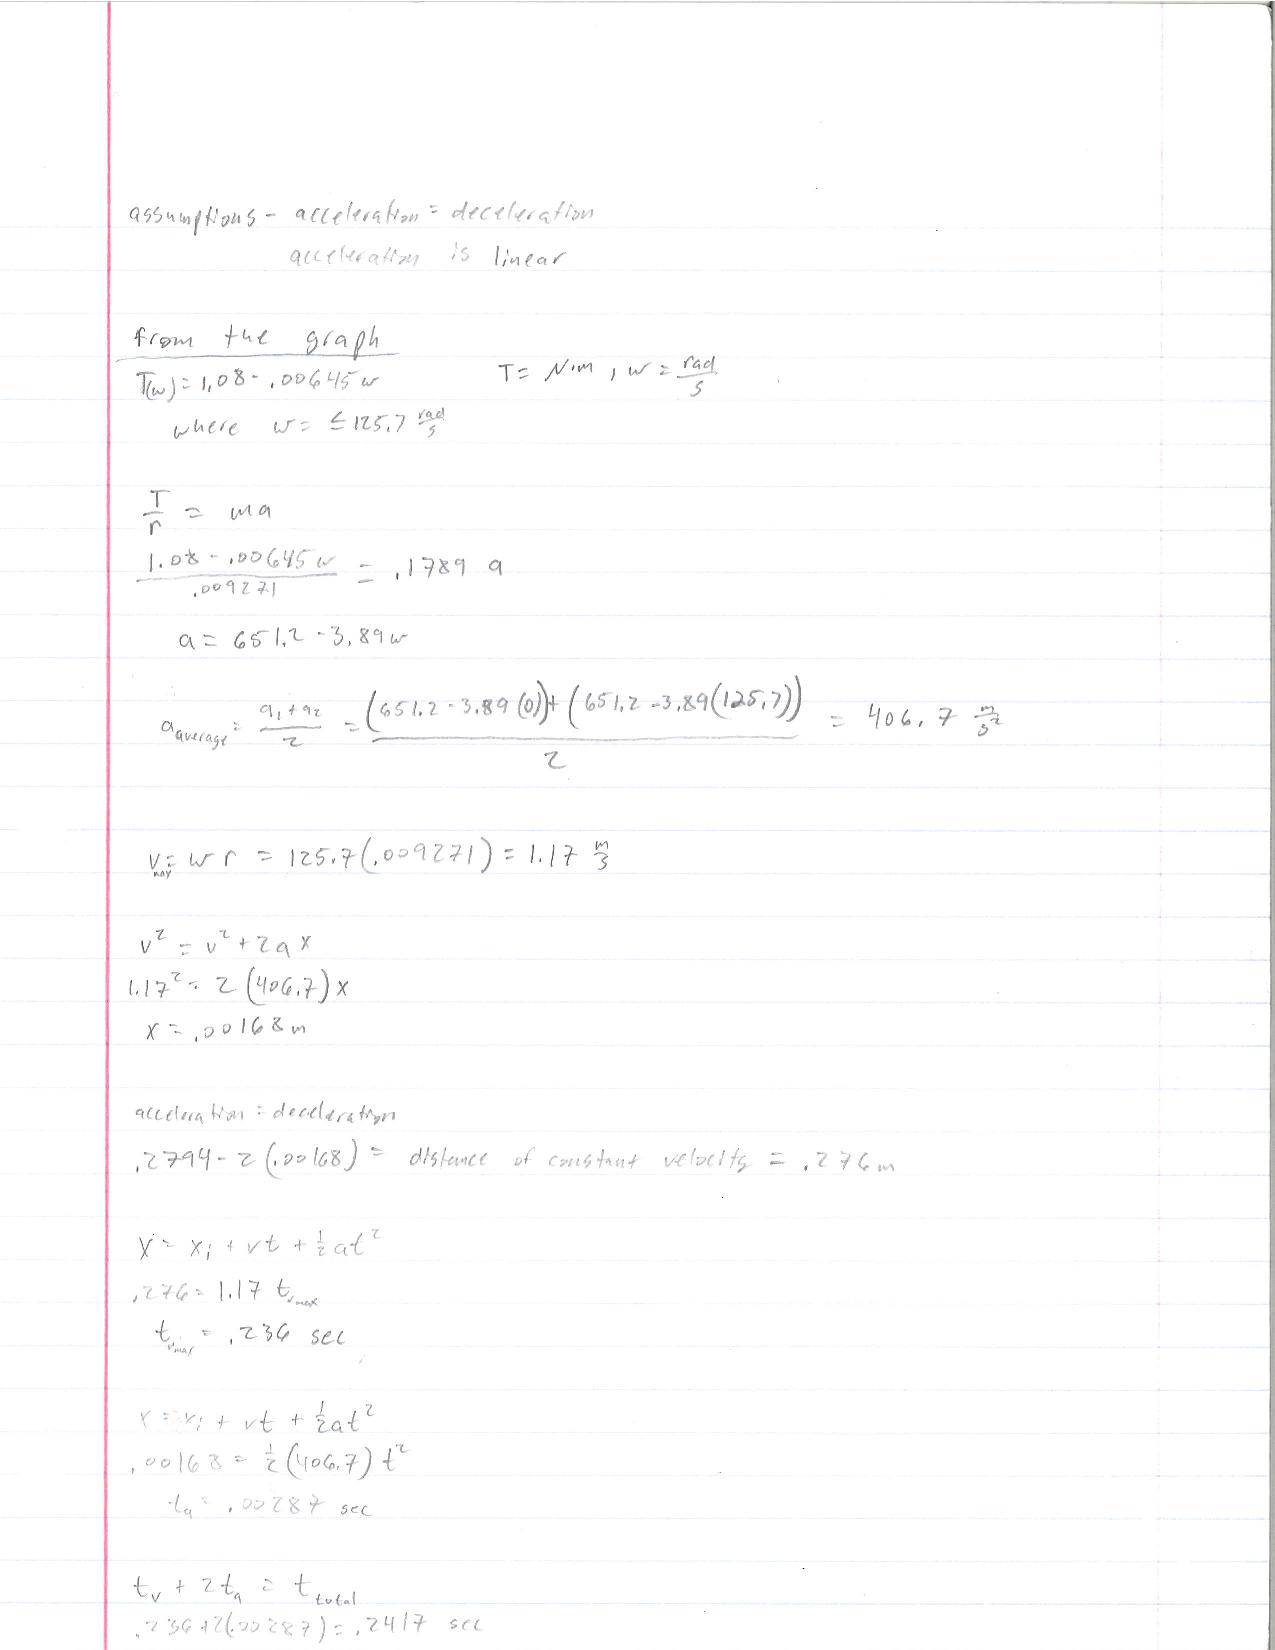 assumptions - acceleration = deceleration
acceleration is linear
from the graph
T(w) = 1.08 - .00645w    T = N·m , w = rad/s
where w = ≤ 125.7 rad/s
T/r = ma
(1.08 - .00645w)/.009271 = .1789 a
a = 651.2 - 3.89w
a_average = (a1 + a2)/2 = ((651.2 - 3.89(0)) + (651.2 - 3.89(125.7)))/2 = 406.7 m/s²
v_max = wr = 125.7(.009271) = 1.17 m/s
v² = v² + 2ax
1.17² = 2(406.7)x
x = .00168m
acceleration = deceleration
.2794 - 2(.00168) = distance of constant velocity = .276m
x = xi + vt + ½at²
.276 = 1.17 t_vmax
t_vmax = .236 sec
x = xi + vt + ½at²
.00168 = ½(406.7)t²
ta = .00287 sec
tv + 2ta = t_total
.236 + 2(.00287) = .2417 sec